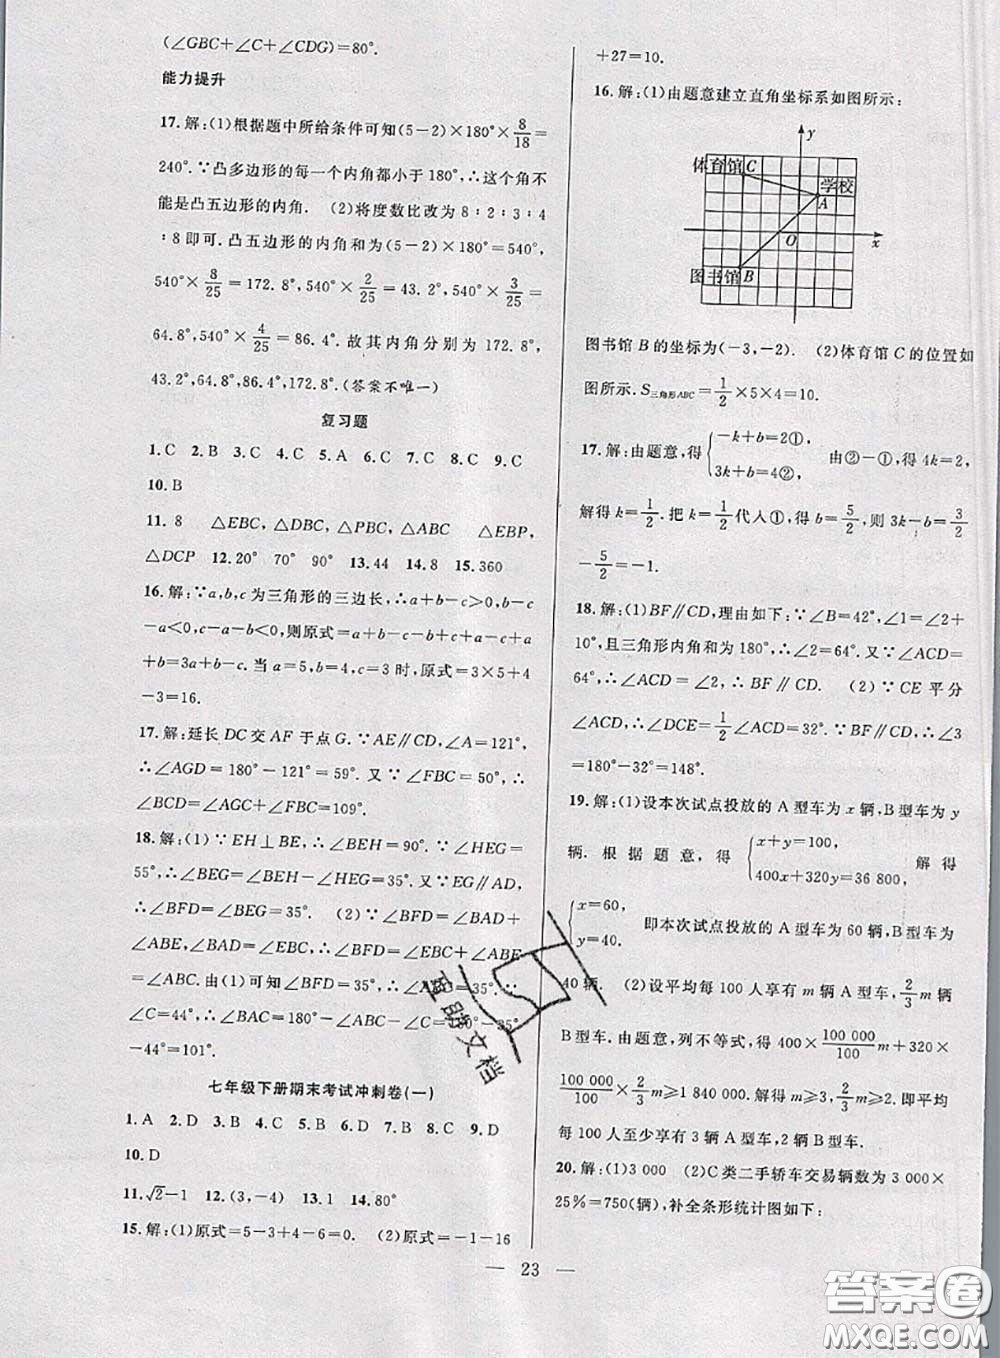 (∠GBC+∠C+∠CDG)=80°.
能力提升
17.解:(1)根据题中所给条件可知(5-2)×180°×8/18=
240°.∵凸多边形的每一个内角都小于180°,∴这个角不
能是凸五边形的内角. (2)将度数比改为8∶2∶3∶4
∶8即可.凸五边形的内角和为(5-2)×180°=540°,
540°×8/25=172.8°,540°×2/25=43.2°,540°×3/25=
64.8°,540°×4/25=86.4°.故其内角分别为172.8°,
43.2°,64.8°,86.4°,172.8°.(答案不唯一)
复习题
1.C 2.B 3.C 4.C 5.A 6.C 7.C 8.C 9.C
10.B
11.8 △EBC,△DBC,△PBC,△ABC △EBP,
△DCP 12.20° 70° 90° 13.44 14.8 15.360
16.解:∵a,b,c为三角形的三边长,∴a+b-c>0,b-c
-a<0,c-a-b<0,则原式=a+b-c-b+c+a-c+a+b=3a+b-c.当a=5,b=4,c=3时,原式=3×5+4
-3=16.
17.解:延长DC交AF于点G.∵AE∥CD,∠A=121°,
∴∠AGD=180°-121°=59°.又∵∠FBC=50°,∴
∠BCD=∠AGC+∠FBC=109°.
18.解:(1)∵EH⊥BE,∴∠BEH=90°.∵∠HEG=
55°,∴∠BEG=∠BEH-∠HEG=35°.又∵EG∥AD,
∴∠BFD=∠BEG=35°. (2)∵∠BFD=∠BAD+
∠ABE,∠BAD=∠EBC,∴∠BFD=∠EBC+∠ABE
=∠ABC.由(1)可知∠BFD=35°,∴∠ABC=35°.∵
∠C=44°,∴∠BAC=180°-∠ABC-∠C=180°-35°
-44°=101°.
七年级下册期末考试冲刺卷(一)
1.A 2.D 3.B 4.C 5.B 6.D 7.B 8.C 9.D
10.D
11.√2-1 12.(3,-4) 13.1 14.80°
15.解:(1)原式=5-3+4-6=0. (2)原式=-1-16
+27=10.
16.解:(1)由题意建立直角坐标系如图所示:
y
体育馆 C
学校
A
O
x
图书馆 B
图书馆B的坐标为(-3,-2). (2)体育馆C的位置如
图所示.S三角形ABC=1/2×5×4=10.
17.解:由题意,得{-k+b=2①, 3k+b=4②, 由②-①,得4k=2,
解得k=1/2.把k=1/2代人①,得b=5/2,则3k-b=3/2
-5/2=-1.
18.解:(1)BF∥CD,理由如下:∵∠B=42°,∠1=∠2+
10°,且三角形内角和为180°,∴∠2=64°.又∵∠ACD=
64°,∴∠ACD=∠2,∴BF∥CD. (2)∵CE平分
∠ACD,∴∠DCE=1/2∠ACD=32°.∵BF∥CD,∴∠3
=180°-32°=148°.
19.解:(1)设本次试点投放的A型车为x辆,B型车为y
辆.根据题意,得{x+y=100, 400x+320y=36 800, 解得
{x=60, y=40. 即本次试点投放的A型车为60辆,B型车为
40辆. (2)设平均每100人享有m辆A型车,2/3m辆
B型车.由题意,列不等式,得400×100 000/100m+320×
100 000/100×2/3m≥1840000.解得m≥3,2/3m≥2.即平均
每100人至少享有3辆A型车,2辆B型车.
20.解:(1)3 000 (2)C类二手轿车交易辆数为3 000×
25%=750(辆),补全条形统计图如下:
23
互助文档
答案圈
MXQE.COM